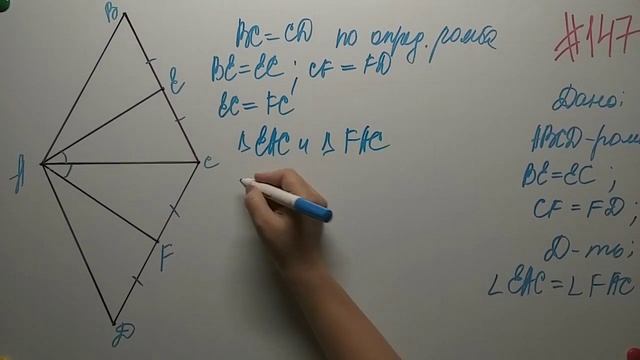 BC = CD по опред. ромба
BE = EC ; CF = FD
EC = FC
Δ EAC и Δ FAC
#147
Дано:
ABCD - ром
BE = EC ;
CF = FD ;
Д-ть;
∠EAC = ∠FAC
B
E
A
C
F
D